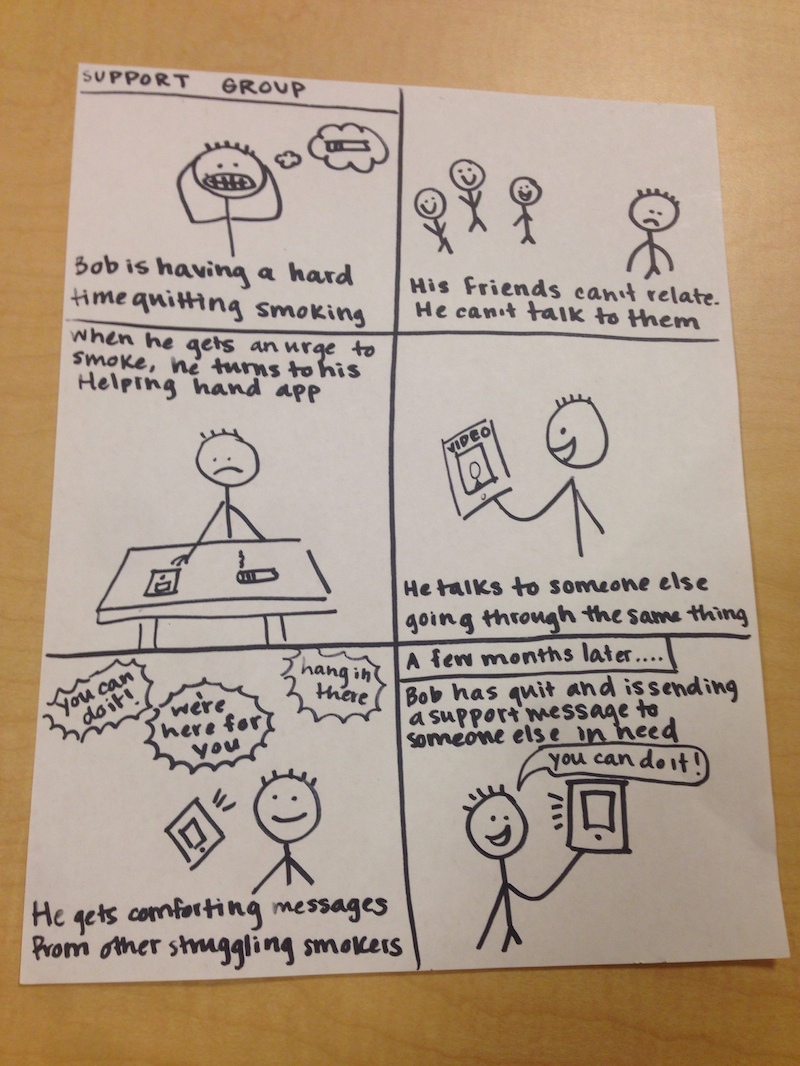 SUPPORT GROUP
Bob is having a hard
time quitting smoking
His friends can't relate.
He can't talk to them
When he gets an urge to
smoke, he turns to his
Helping hand app
VIDEO
He talks to someone else
going through the same thing
you can
do it!
we're
here for
you
hang in
there
He gets comforting messages
from other struggling smokers
A few months later....
Bob has quit and is sending
a support message to
someone else in need
you can do it!